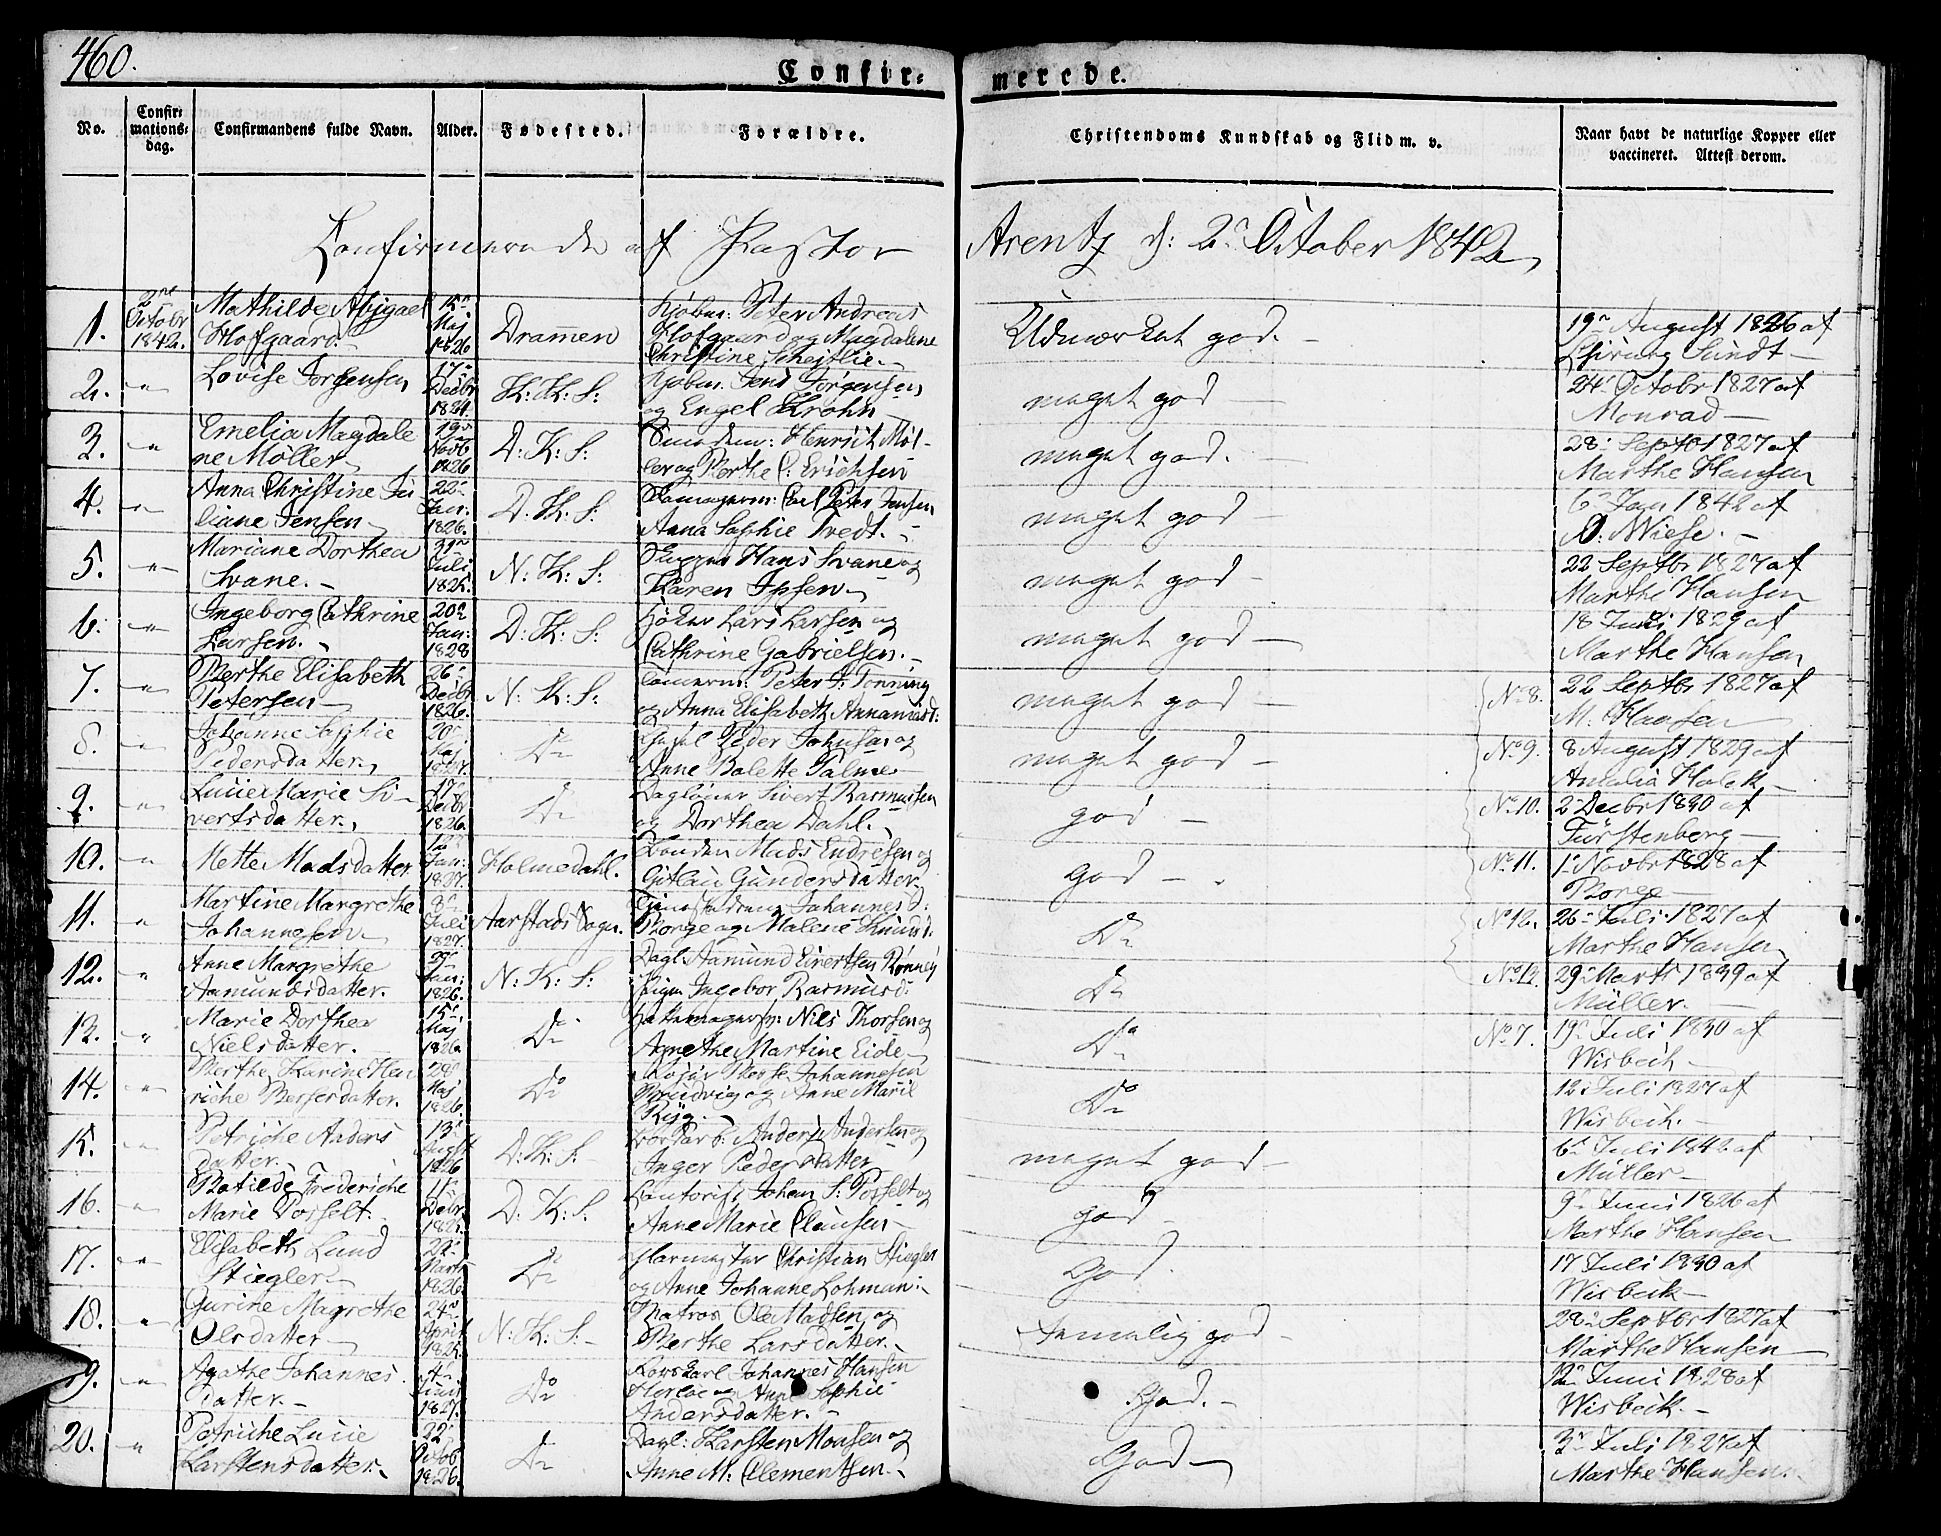 460.
Confir=
merede.
No.
Confir=
mations=
dag.
Confirmandens fulde Navn.
Alder.
Fødested.
Forældre.
Christendoms Kundskab og Flid m. v.
Naar havt de naturlige Kopper eller
vaccineret. Attest derom.
Confirmerede af Pastor
Arentz d: 2n October 1842
1.
2ne
Octobr
1842.
Mathilde Abigael
Hofgaard.
15n
Maj
1826
Drammen
Kjøbm: Peter Andreas
Hofgaard og Magdalene
Christine Scheitlie.
Udmærket god. -
19n August 1826 af
Chirurg Sundt -
2.
-"-
Lovise Jørgensen
17n
Decbr
K: K: S:
Kjøbm. Jens Jørgensen
og Engel Krohn
meget god -
24n Octobr 1827 af
Monrad -
3.
-"-
Emelia Magdale
ne Møller
19n
Novb
1826
D: K: S:
Henrich Møl-
ler og Berthe C: Erichsen
meget god. -
28n Septbr 1827 af
Marthe Hansen
4.
-"-
Anna Christine Ju
liane Jensen
22n
Jan:
1826.
D: K: S:
Carl Peter Jensen
Anna Sophie Tvedt. -
meget god -
6n Jan 1842 af
D: Wiese. -
5.
-"-
Mariane Dorthea
Svane. -
Juli
1825.
N: K: S:
Hans Svane og
Karen Ipsen
meget god -
22 Septbr 1827 af
Marthe Hansen
6.
-"-
Ingeborg Cathrine
Larsen.
20n
Jan:
1828
D: K: S:
Høker Lars Larsen og
Cathrine Gabrielsen. -
meget god -
18 Juli 1829 af
Marthe Hansen
7.
-"-
Berthe Elisabeth
Petersen -
26n
Decbr
1826.
N: K: S:
Tømerm: Peter J: Tønning
og Anna Elisabeth Annamasd:
meget god -
No 8.
22 Septbr 1827 af
M: Hansen
8.
-"-
Johanne Sophie
Pedersdatter
20n
Maj
1827.
Do
Peder Johnsen og
Anne Bolette Palme
meget god -
No 9.
8 August 1829 af
Amalia Holck
9.
-"-
Lucie Marie Si-
vertsdatter.
17n
Decbr
1826.
Do
Dagløner Sivert Rasmussen
og Dorthea Dahl.
god -
No 10.
2 Decbr 1830 af
Fürstenberg -
10.
-"-
Mette Madsdatter
Jan:
1827.
Holmedahl.
Bonden Mads Endresen og
Gitlau Gundersdatter.
God - .
No 11.
1n Novbr 1828 af
Borge -
11.
"
Martine Margrethe
Johannesen
8n
Juli
1827.
Aarstads Sogn.
Johannes J:
Borge og Malene Knuds:
Do
No 12.
26n Juli 1827 af
Marthe Hansen
12.
"
Anne Margrethe
Aamundsdatter.
Jan:
1826.
N: K: S:
Dagl: Aamund Einertsen Rønnej
Ingebor Rasmusd:
Do
29n Marts 1839 af
Müller. -
13.
-"
Marie Dorthea
Nielsdatter.
15n
Maj
1826.
Do
Nils Thorsen og
Agnethe Martine Eide -
Do
No 7.
19n Juli 1830 af
Wisbech -
14.
-"-
Berthe Karine Hen
riche Bessesdatter.
28n
Maj
1826.
Do
Besse Johannesen
Bredvig og Anne Marie
Ryg. -
Do
12n Juli 1827 af
Wisbech. -
15.
-"-
Petriche Anders
datter.
13n
August
1826
D: K: S: -
Anders Andersen og
Inger Pedersdatter
meget god -
6n Juli 1842 af
Müller -
16.
-"-
Matilde Frederiche
Marie Posselt.
11n
Debr
1825.
D: K: S:
Contorist Johan S: Posselt og
Anne Marie Clausen
god
9n Juni 1826 af
Marthe Hansen
17.
-"-
Elisabeth Lund
Stiegler -
Marts
1826.
Do
Glarmester Christian Stiegler
og Anne Johanne Lohman:
God.
17 Juli 1830 af
Wisbech -
18.
-"-
Gurine Magrethe
Olsdatter -
24n
April
1825.
N: K: S: -
Matros Ole Madsen og
Berthe Larsdatter. -
temelig god -
28n Septbr 1827 af
Marthe Hansen
19.
-"-
Agathe Johannes
datter. -
4n
Juni
1827.
Do
Johannes Hansen
og Anne Sophie
Andersdatter. -
God. -
12n Juni 1828 af
Wisbech. -
20.
-"-
Petriche Lucie
Karstensdatter.
22n
Octob
1826.
Do
Dagl: Karsten Monsen og
Anne M: Clementsen.
God -
3n Juli 1827 af
Marthe Hansen.